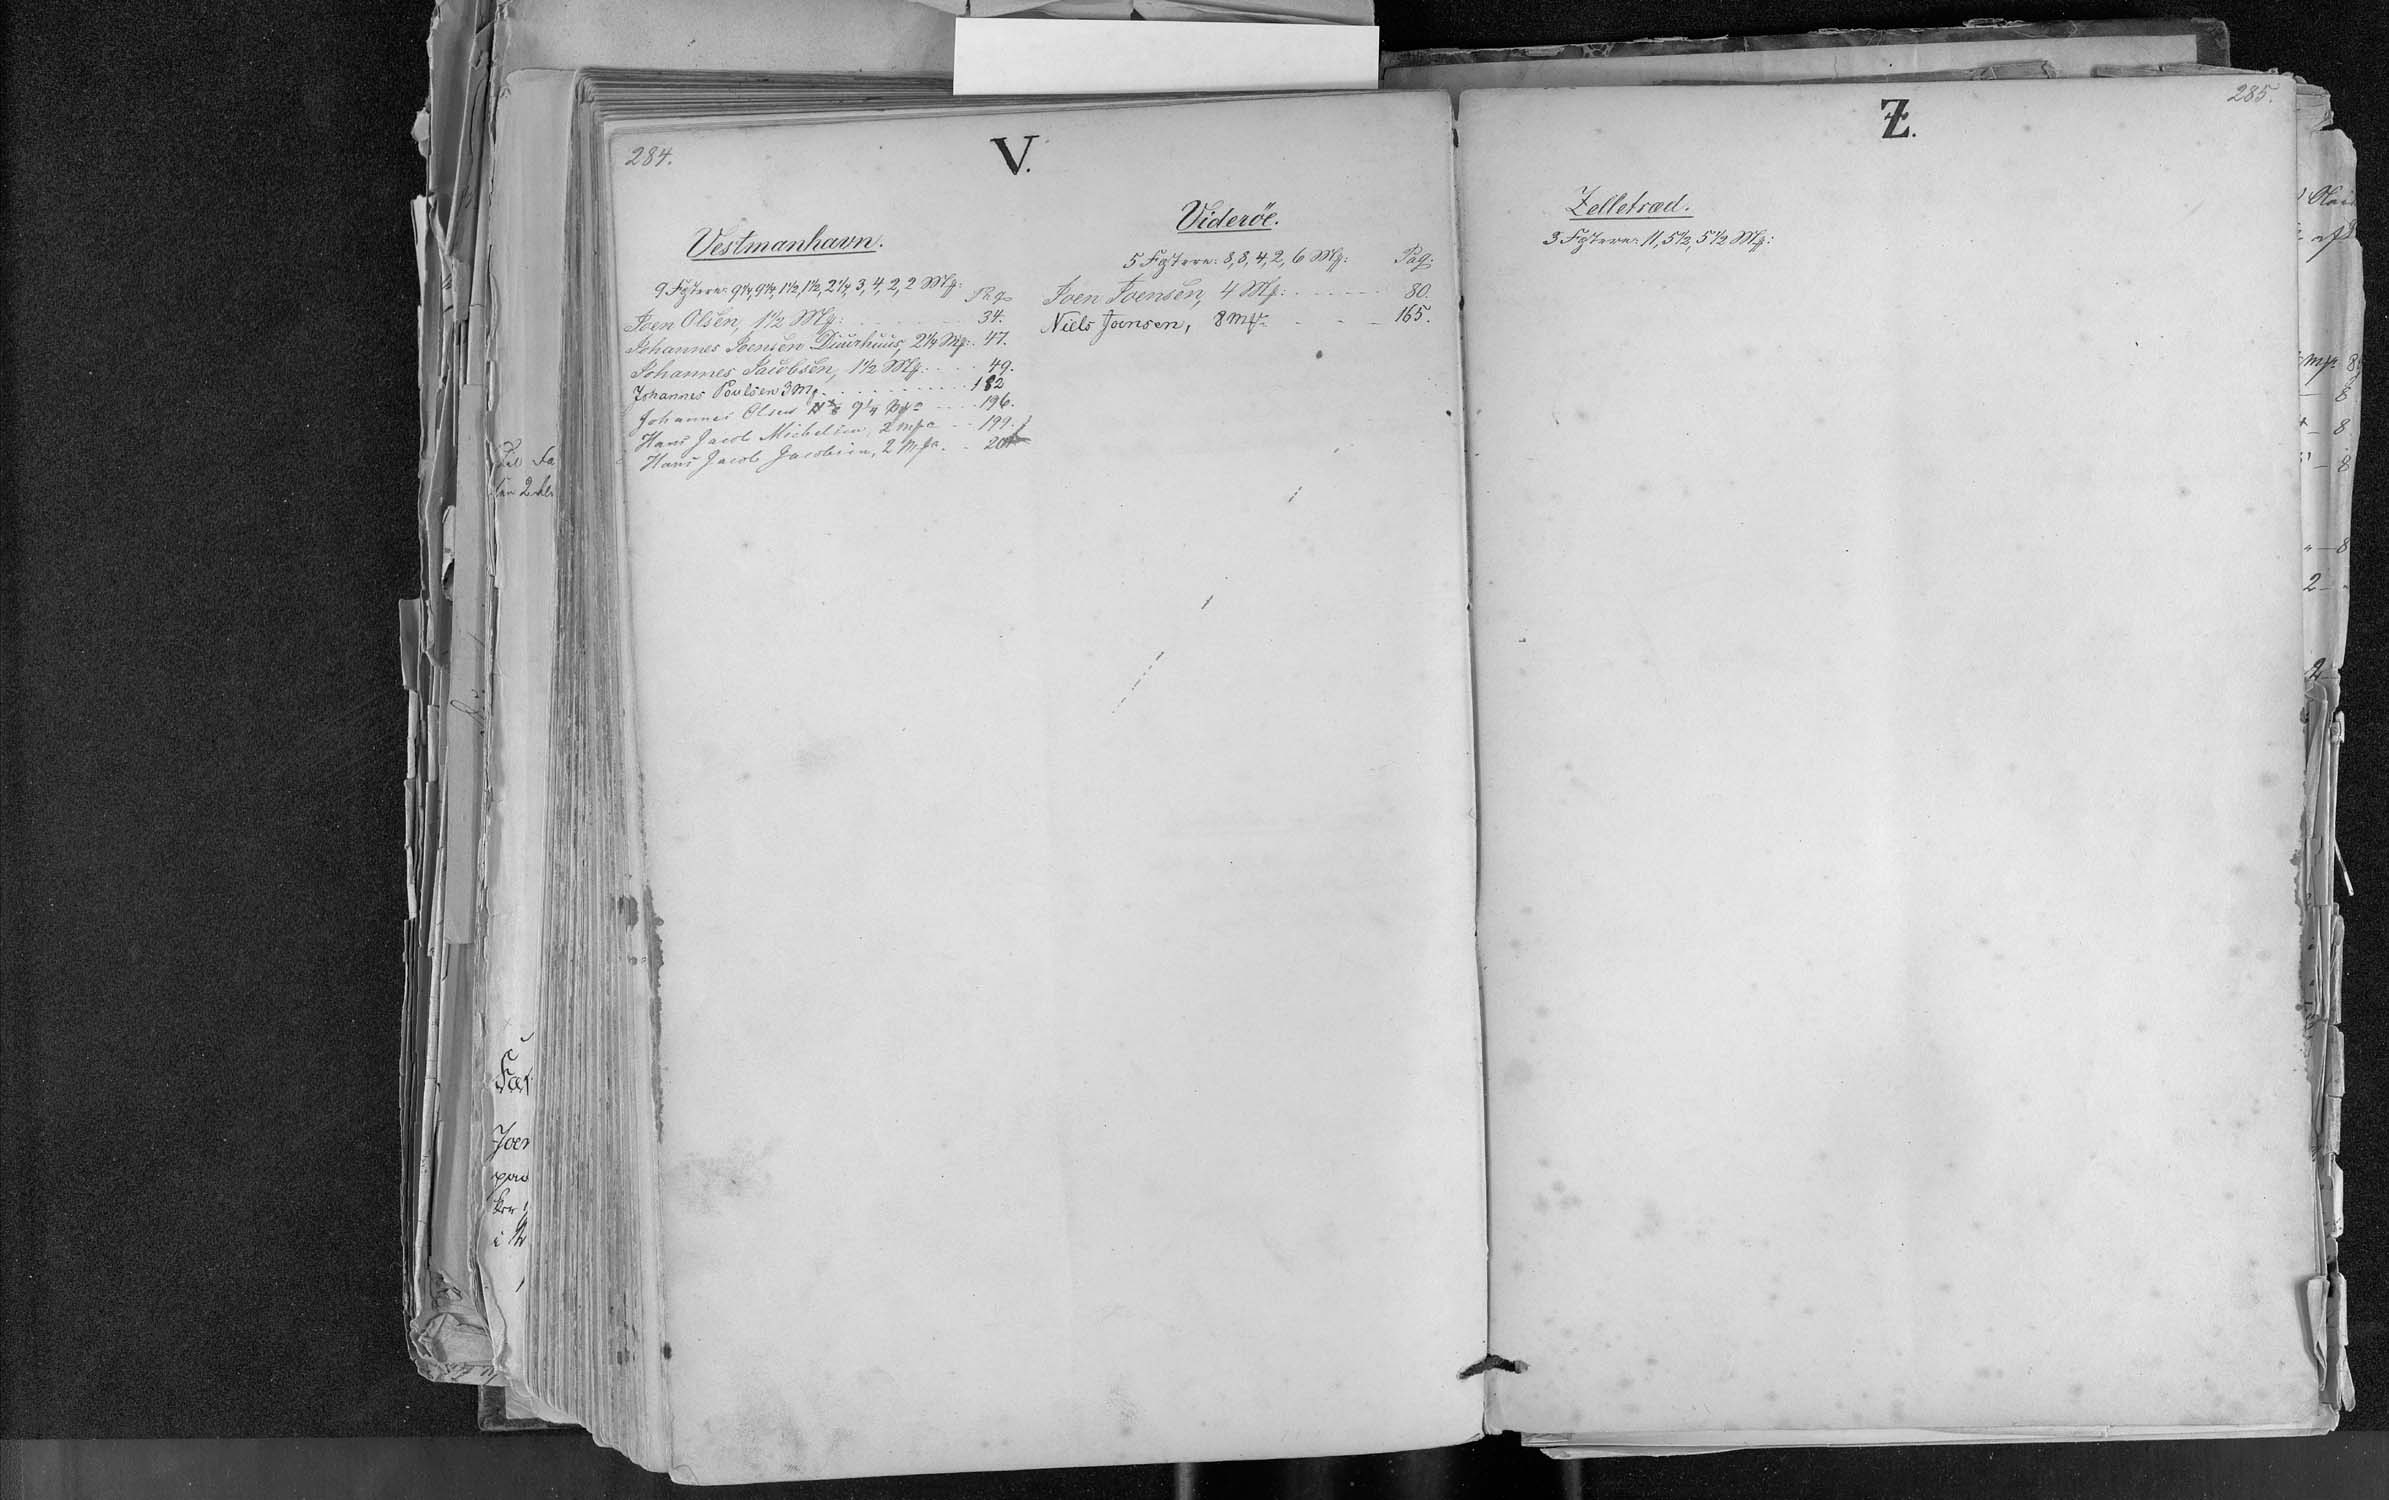 284.
V.
Vestmanhavn.
9 Fæstere: 9¼, 9¼, 1½, 1½, 2¼, 3, 4, 2, 2 Mk:
Pag.
Joen Olsen, 1½ Mk: 34.
Johannes Joensen Diurhuus, 2¼ Mk: 47.
Johannes Jacobsen, 1½ Mk: 49.
Johannes Poulsen 3 Mk 182
Johannes Olsen 9¼ Mk 196.
Hans Jacob Michelsen, 2 Mk 199.
Hans Jacob Jacobsen, 2 Mk
Viderøe.
5 Fæstere: 8, 8, 4, 2, 6 Mk: Pag:
Joen Joensen, 4 Mk: 80.
Niels Jansen, 8 Mk 165.
285.
Z.
Zelletræd.
3 Fæstere: 11, 5½, 5½ Mk: